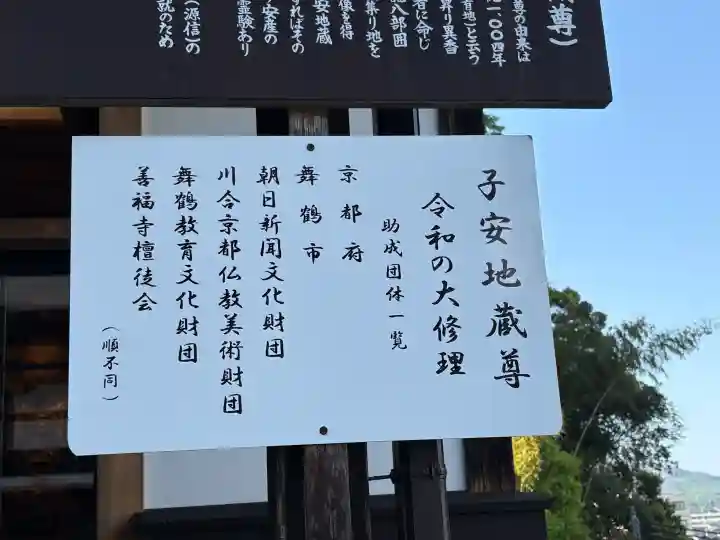 尊）
尊の由来は
一〇〇四年
音地）と云う
昇り異香
者に命じ
地八部囲
集り地を
像を得
安地蔵
ればその
子安産の
霊験あり
（源信）の
就のため
子安地蔵尊
令和の大修理
助成団体一覧
京都府
舞鶴市
朝日新聞文化財団
川合京都仏教美術財団
舞鶴教育文化財団
善福寺檀徒会
（順不同）